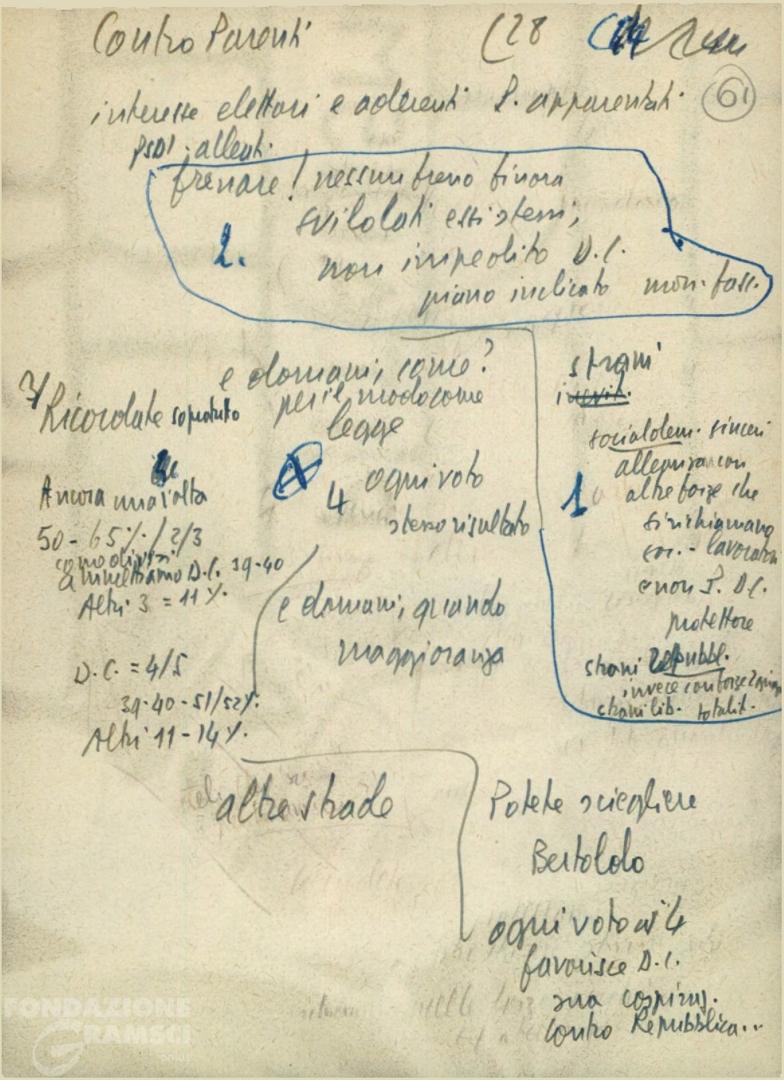 Contro Parenti (28
61
interesse elettori e aderenti P. apparentati
PSDI allenti.
frenare! nessun freno finora
2.
essi stessi,
non impedito D.C.
piano indicato mon-fasc.
e domani, come?
per il modo come
legge
7) Ricordate sopratutto
Ancora una volta
50 - 65% / 2/3
D.C. 39-40
Altri 3 = 11%.
D.C. = 4/5
39-40-51/52%.
Altri 11-14%.
4 ogni voto
stesso risultato
e domani, quando
maggioranza
strani
socialdem. sinceri
1
altre forze che
si richiamano
soc. - lavorat
e non P. D.C.
protettore
strani repubbl.
invece con forze
strani lib. totalit.
altre strade
Potete sciegliere
Bertoldo
ogni voto ai 4
favorisce D.C.
sua cospiraz.
contro Repubblica...
FONDAZIONE
GRAMSCI